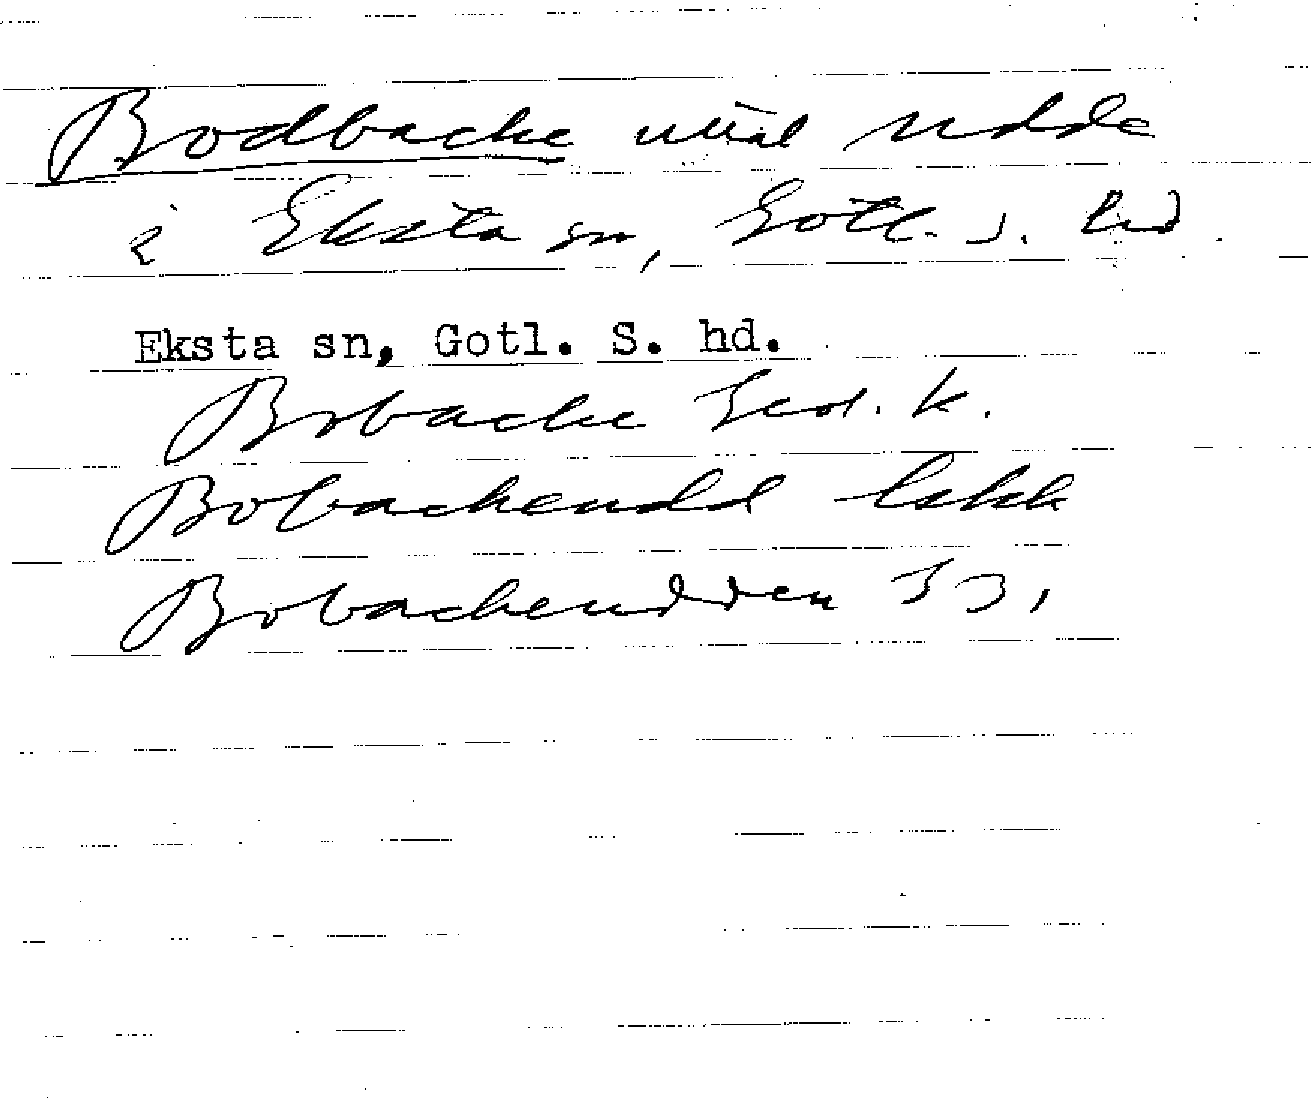 Bodbacke uttal udde
i Eksta sn, Gotl. s. hd.
Eksta sn, Gotl. S. hd.
Bobacke Geol. k.
Bobackeudd
Bobackeudden 33,